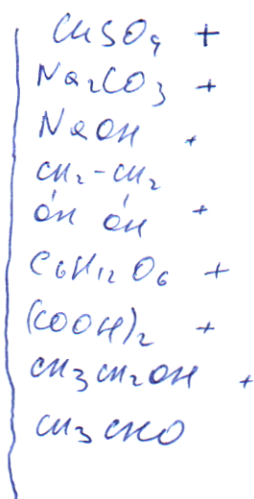 CuSO₄ +
Na₂CO₃ +
NaOH +
CH₂-CH₂
OH OH +
C₆H₁₂O₆ +
(COOH)₂ +
CH₃CH₂OH +
CH₃CHO